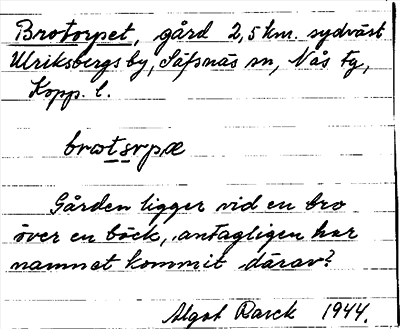 Brotorpet, gård 2,5 km. sydväst
Ulriksbergs by, Säfsnäs sn, Nås fg,
Kopp. l.
brotsrpæ
Gården ligger vid en bro
över en bäck, antagligen har
namnet kommit därav?
Algot Rarck 1944.